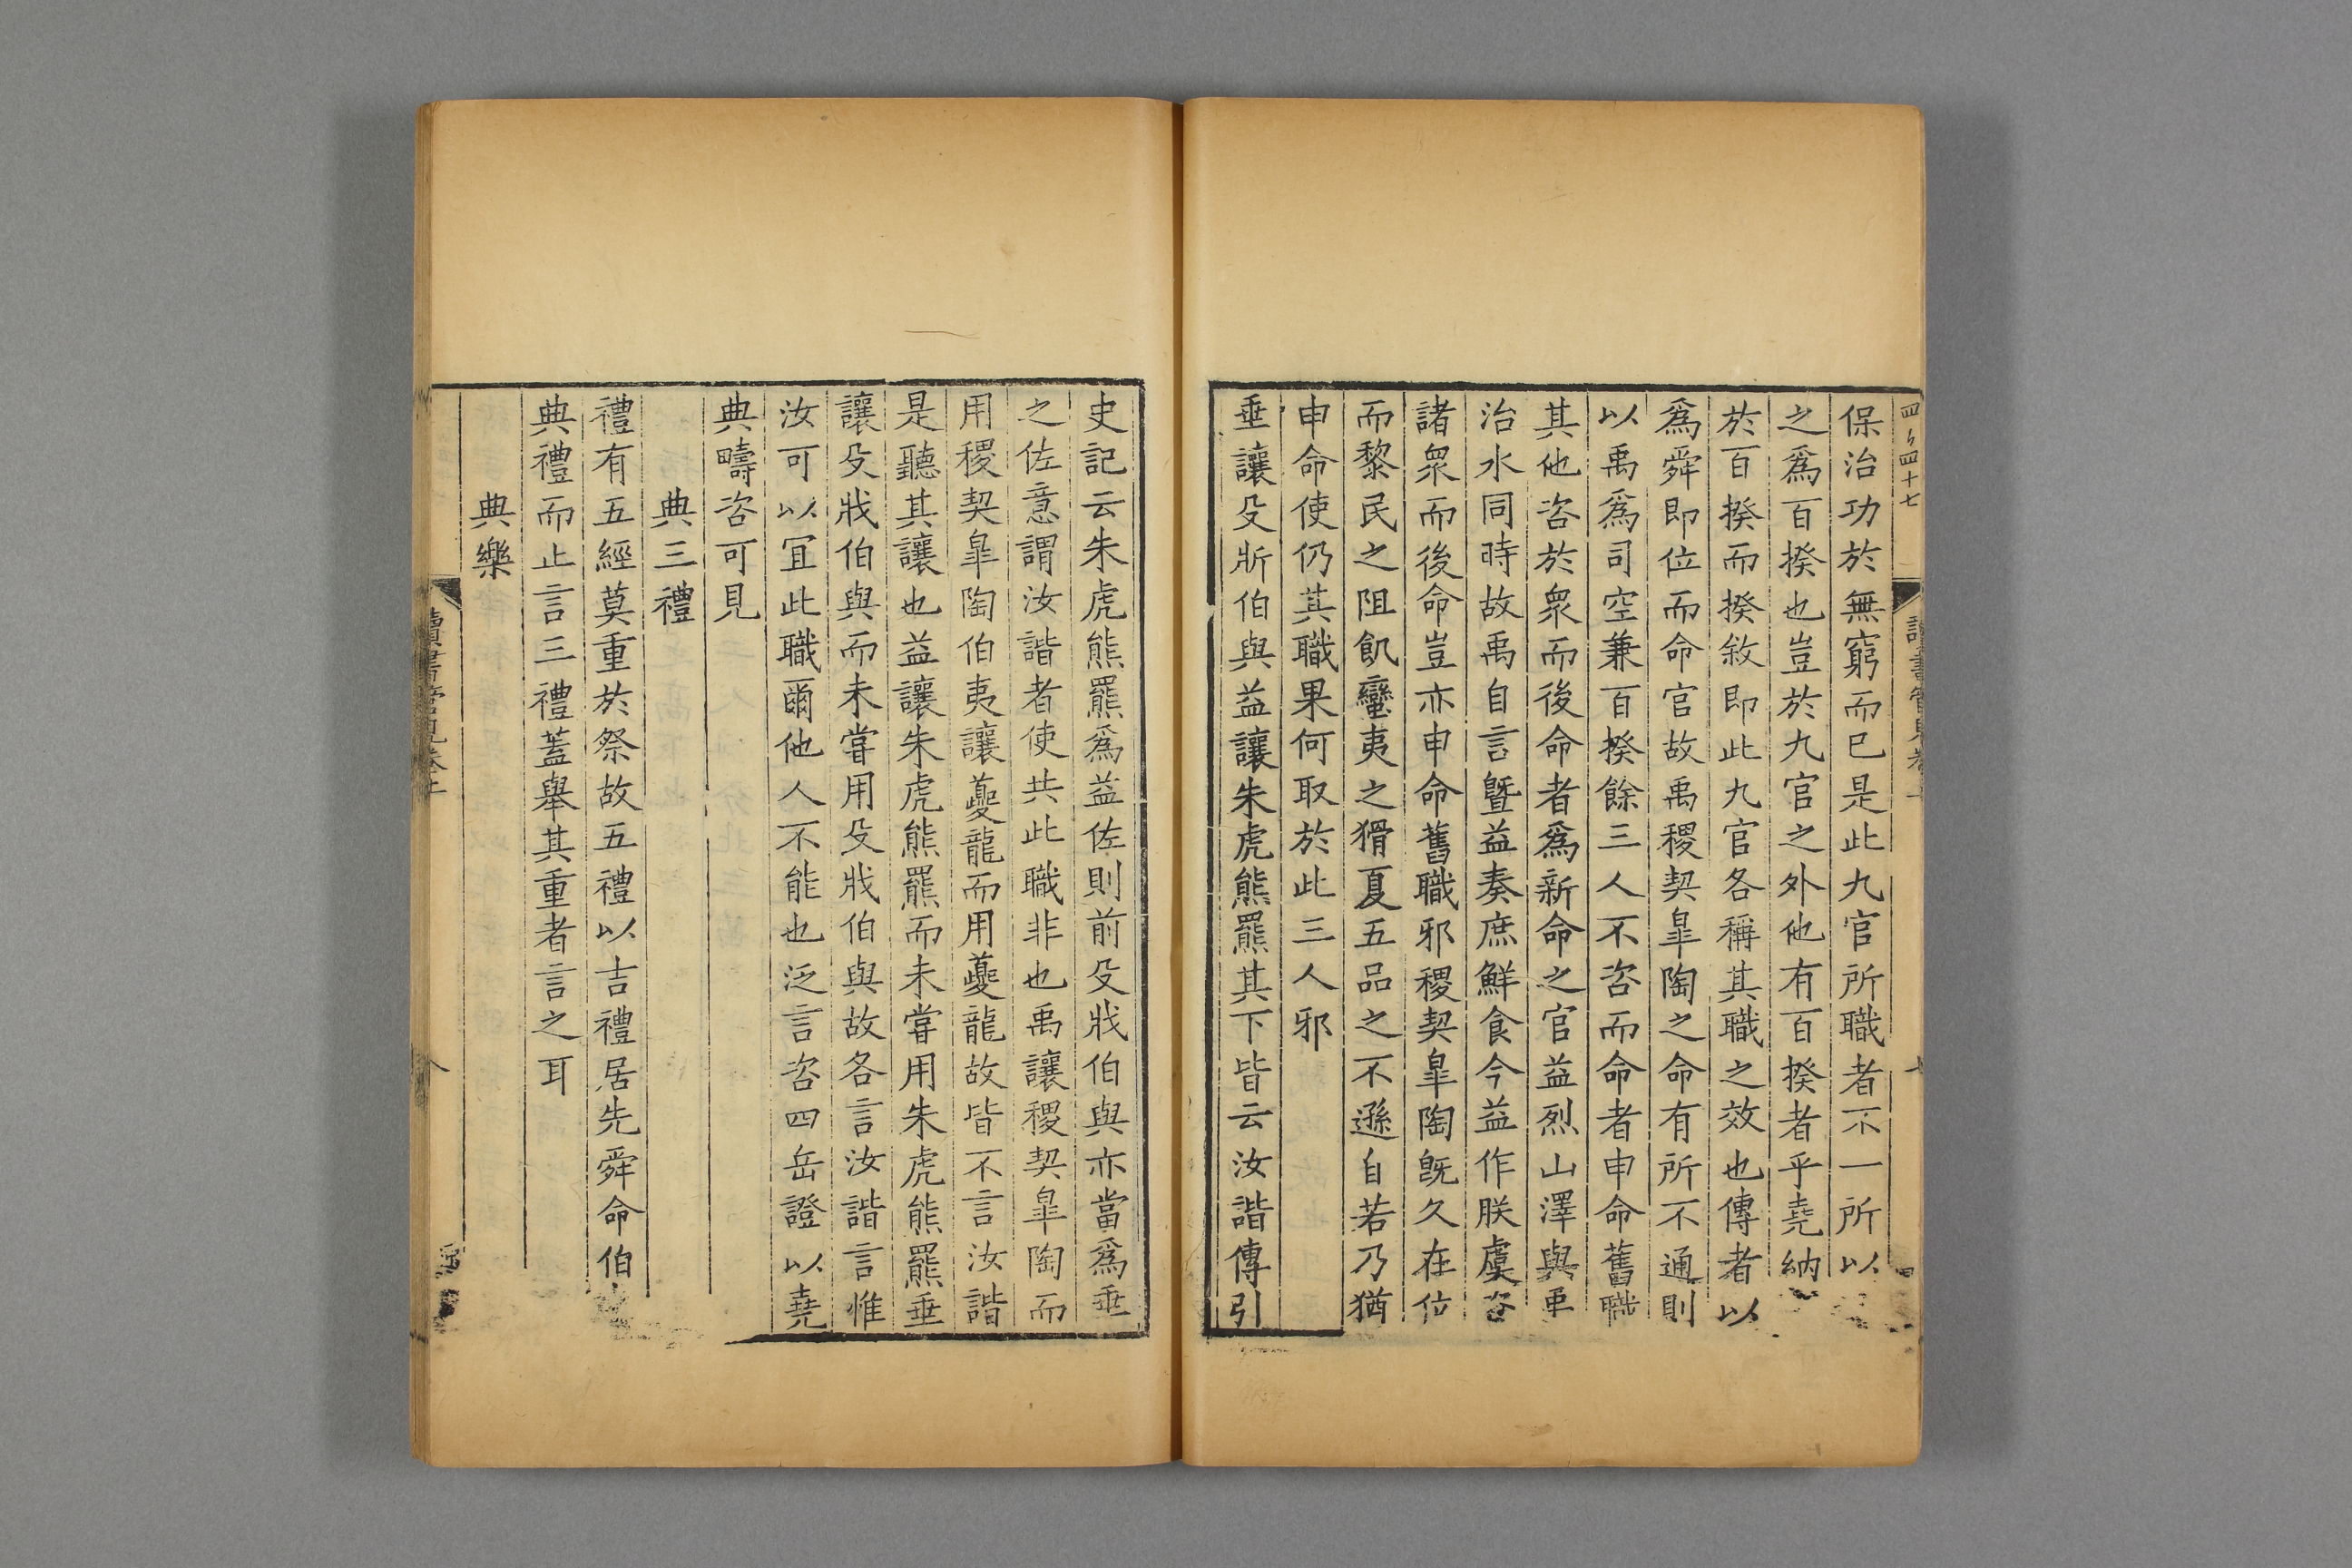 保治功於無窮而已是此九官所職者不一所以
之爲百揆也豈於九官之外他有百揆者乎堯納
於百揆而揆敘即此九官各稱其職之效也傳者以
爲舜即位而命官故禹稷契皐陶之命有所不通則
以禹爲司空兼百揆餘三人不咨而命者申命舊職
其他咨於衆而後命者爲新命之官益烈山澤與禹
治水同時故禹自言曁益奏庶鮮食今益作朕虞咨
諸衆而後命豈亦申命舊職邪稷契皐陶旣久在位
而黎民之阻飢蠻夷之猾夏五品之不遜自若乃猶
申命使仍其職果何取於此三人邪
垂讓殳斨伯與益讓朱虎熊羆其下皆云汝諧傳引
史記云朱虎熊羆爲益佐則前殳戕伯與亦當爲垂
之佐意謂汝諧者使共此職非也禹讓稷契皐陶而
用稷契皐陶伯夷讓夔龍而用夔龍故皆不言汝諧
是聽其讓也益讓朱虎熊羆而未嘗用朱虎熊羆垂
讓殳戕伯與而未嘗用殳戕伯與故各言汝諧言惟
汝可以宜此職爾他人不能也泛言咨四岳證以堯
典疇咨可見
典三禮
禮有五經莫重於祭故五禮以吉禮居先舜命伯
典禮而止言三禮蓋舉其重者言之耳
典樂
讀書管見卷上
八